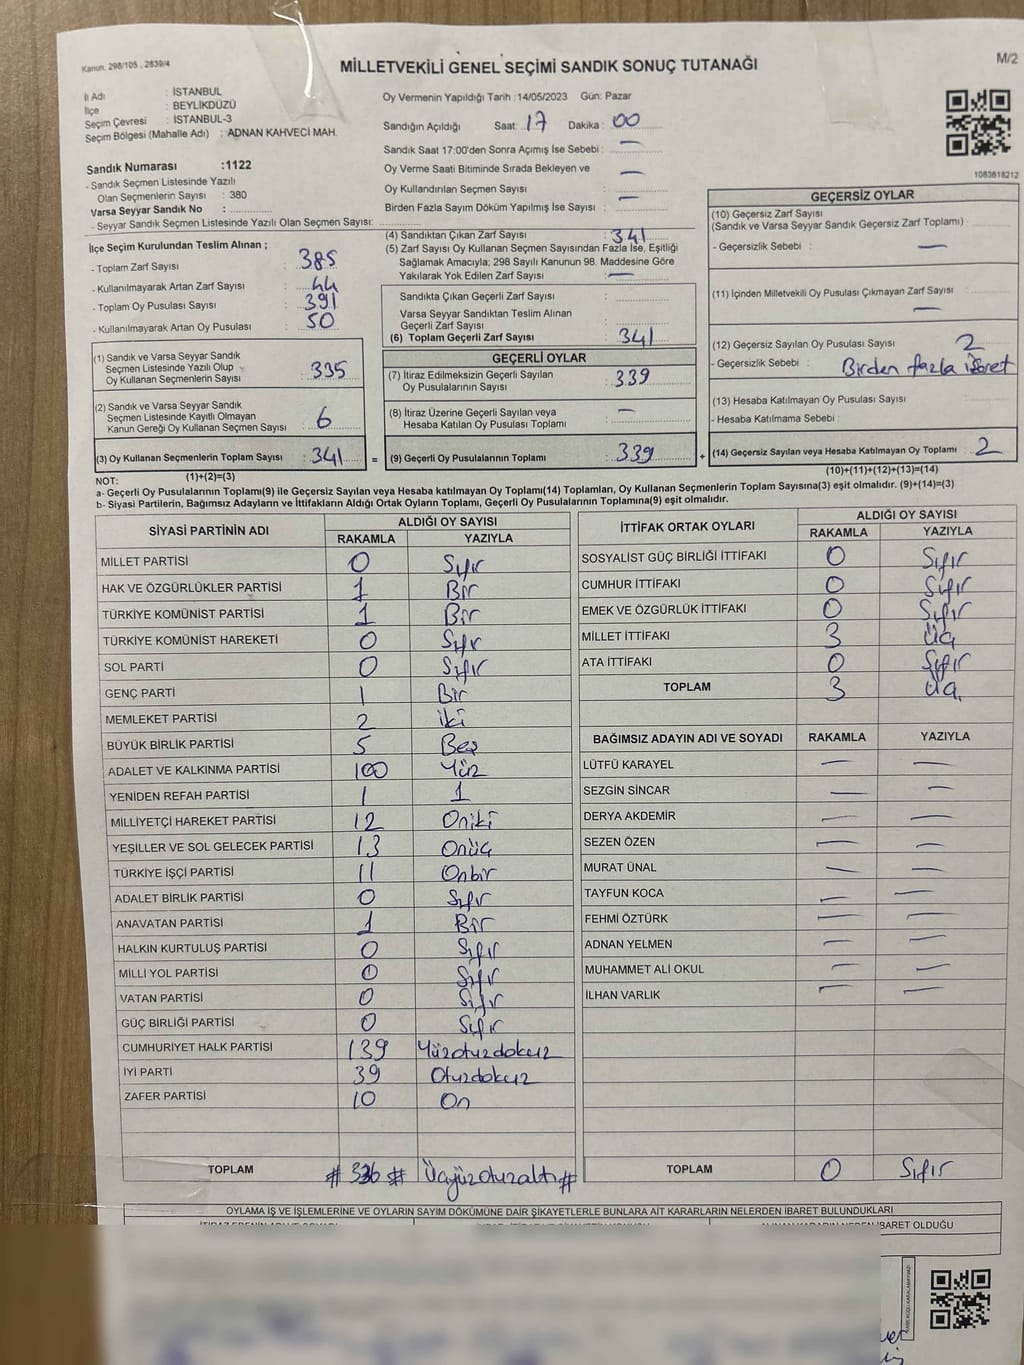 Kanun. 298/105 , 2839/4
MİLLETVEKİLİ GENEL SEÇİMİ SANDIK SONUÇ TUTANAĞI
M/2
İl Adı : İSTANBUL
İlçe : BEYLİKDÜZÜ
Seçim Çevresi : İSTANBUL-3
Seçim Bölgesi (Mahalle Adı) : ADNAN KAHVECİ MAH.
Sandık Numarası :1122
- Sandık Seçmen Listesinde Yazılı
Olan Seçmenlerin Sayısı : 380
Varsa Seyyar Sandık No :
- Seyyar Sandık Seçmen Listesinde Yazılı Olan Seçmen Sayısı:
Oy Vermenin Yapıldığı Tarih :14/05/2023 Gün: Pazar
Sandığın Açıldığı Saat: 17 Dakika : 00
Sandık Saat 17:00'den Sonra Açımış İse Sebebi : —
Oy Verme Saati Bitiminde Sırada Bekleyen ve
Oy Kullandırılan Seçmen Sayısı : —
Birden Fazla Sayım Döküm Yapılmış İse Sayısı : —
1083618212
İlçe Seçim Kurulundan Teslim Alınan ;
- Toplam Zarf Sayısı : 385
- Kullanılmayarak Artan Zarf Sayısı : 44
- Toplam Oy Pusulası Sayısı : 391
- Kullanılmayarak Artan Oy Pusulası : 50
(1) Sandık ve Varsa Seyyar Sandık
Seçmen Listesinde Yazılı Olup
Oy Kullanan Seçmenlerin Sayısı : 335
(2) Sandık ve Varsa Seyyar Sandık
Seçmen Listesinde Kayıtlı Olmayan
Kanun Gereği Oy Kullanan Seçmen Sayısı : 6
(3) Oy Kullanan Seçmenlerin Toplam Sayısı : 341 =
(1)+(2)=(3)
(4) Sandıktan Çıkan Zarf Sayısı : 341
(5) Zarf Sayısı Oy Kullanan Seçmen Sayısından Fazla İse, Eşitliği
Sağlamak Amacıyla; 298 Sayılı Kanunun 98. Maddesine Göre
Yakılarak Yok Edilen Zarf Sayısı : —
Sandıkta Çıkan Geçerli Zarf Sayısı :
Varsa Seyyar Sandıktan Teslim Alınan
Geçerli Zarf Sayısı :
(6) Toplam Geçerli Zarf Sayısı : 341
GEÇERLİ OYLAR
(7) İtiraz Edilmeksizin Geçerli Sayılan
Oy Pusulalarının Sayısı : 339
(8) İtiraz Üzerine Geçerli Sayılan veya
Hesaba Katılan Oy Pusulası Toplamı : —
(9) Geçerli Oy Pusulalarının Toplamı : 339 +
GEÇERSİZ OYLAR
(10) Geçersiz Zarf Sayısı
(Sandık ve Varsa Seyyar Sandık Geçersiz Zarf Toplamı) :
- Geçersizlik Sebebi : —
(11) İçinden Milletvekili Oy Pusulası Çıkmayan Zarf Sayısı : —
(12) Geçersiz Sayılan Oy Pusulası Sayısı : 2
- Geçersizlik Sebebi : Birden fazla işaret
(13) Hesaba Katılmayan Oy Pusulası Sayısı :
- Hesaba Katılmama Sebebi :
(14) Geçersiz Sayılan veya Hesaba Katılmayan Oy Toplamı : 2
(10)+(11)+(12)+(13)=(14)
NOT:
a- Geçerli Oy Pusulalarının Toplamı(9) ile Geçersiz Sayılan veya Hesaba katılmayan Oy Toplamı(14) Toplamları, Oy Kullanan Seçmenlerin Toplam Sayısına(3) eşit olmalıdır. (9)+(14)=(3)
b- Siyasi Partilerin, Bağımsız Adayların ve İttifakların Aldığı Ortak Oyların Toplamı, Geçerli Oy Pusulalarının Toplamına(9) eşit olmalıdır.
SİYASİ PARTİNİN ADI ALDIĞI OY SAYISI
RAKAMLA YAZIYLA
MİLLET PARTİSİ 0 Sıfır
HAK VE ÖZGÜRLÜKLER PARTİSİ 1 Bir
TÜRKİYE KOMÜNİST PARTİSİ 1 Bir
TÜRKİYE KOMÜNİST HAREKETİ 0 Sıfır
SOL PARTİ 0 Sıfır
GENÇ PARTİ 1 Bir
MEMLEKET PARTİSİ 2 iki
BÜYÜK BİRLİK PARTİSİ 5 Beş
ADALET VE KALKINMA PARTİSİ 100 Yüz
YENİDEN REFAH PARTİSİ 1 1
MİLLİYETÇİ HAREKET PARTİSİ 12 Oniki
YEŞİLLER VE SOL GELECEK PARTİSİ 13 Onüç
TÜRKİYE İŞÇİ PARTİSİ 11 Onbir
ADALET BİRLİK PARTİSİ 0 Sıfır
ANAVATAN PARTİSİ 1 Bir
HALKIN KURTULUŞ PARTİSİ 0 Sıfır
MİLLİ YOL PARTİSİ 0 Sıfır
VATAN PARTİSİ 0 Sıfır
GÜÇ BİRLİĞİ PARTİSİ 0 Sıfır
CUMHURİYET HALK PARTİSİ 139 Yüzotuzdokuz
İYİ PARTİ 39 Otuzdokuz
ZAFER PARTİSİ 10 On
TOPLAM # 336 # Üçyüzotuzaltı #
İTTİFAK ORTAK OYLARI ALDIĞI OY SAYISI
RAKAMLA YAZIYLA
SOSYALİST GÜÇ BİRLİĞİ İTTİFAKI 0 Sıfır
CUMHUR İTTİFAKI 0 Sıfır
EMEK VE ÖZGÜRLÜK İTTİFAKI 0 Sıfır
MİLLET İTTİFAKI 3 Üç
ATA İTTİFAKI 0 Sıfır
TOPLAM 3 Üç
BAĞIMSIZ ADAYIN ADI VE SOYADI RAKAMLA YAZIYLA
LÜTFÜ KARAYEL — —
SEZGİN SİNCAR — —
DERYA AKDEMİR — —
SEZEN ÖZEN — —
MURAT ÜNAL — —
TAYFUN KOCA — —
FEHMİ ÖZTÜRK — —
ADNAN YELMEN — —
MUHAMMET ALİ OKUL — —
İLHAN VARLIK — —
TOPLAM 0 Sıfır
OYLAMA İŞ VE İŞLEMLERİNE VE OYLARIN SAYIM DÖKÜMÜNE DAİR ŞİKAYETLERLE BUNLARA AİT KARARLARIN NELERDEN İBARET BULUNDUKLARI
İBARET OLDUĞU